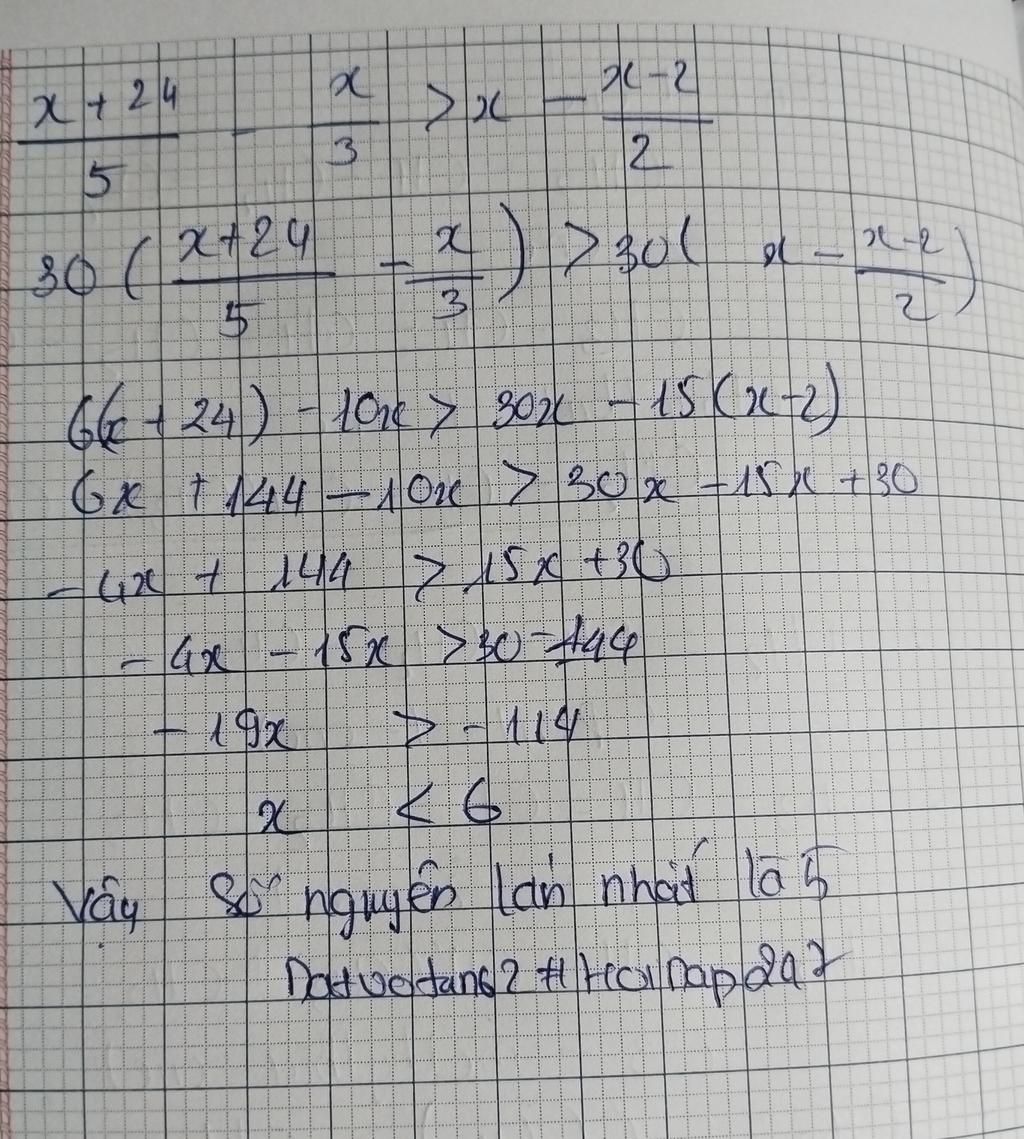 x + 24 / 5 - x / 3 > x - x - 2 / 2
30 ( x + 24 / 5 - x / 3 ) > 30 ( x - x - 2 / 2 )
6(x + 24) - 10x > 30x - 15(x - 2)
6x + 144 - 10x > 30x - 15x + 30
- 4x + 144 > 15x + 30
- 4x - 15x > 30 - 144
- 19x > - 114
x < 6
Vậy số nguyên lớn nhất là 5
#HoiDap247